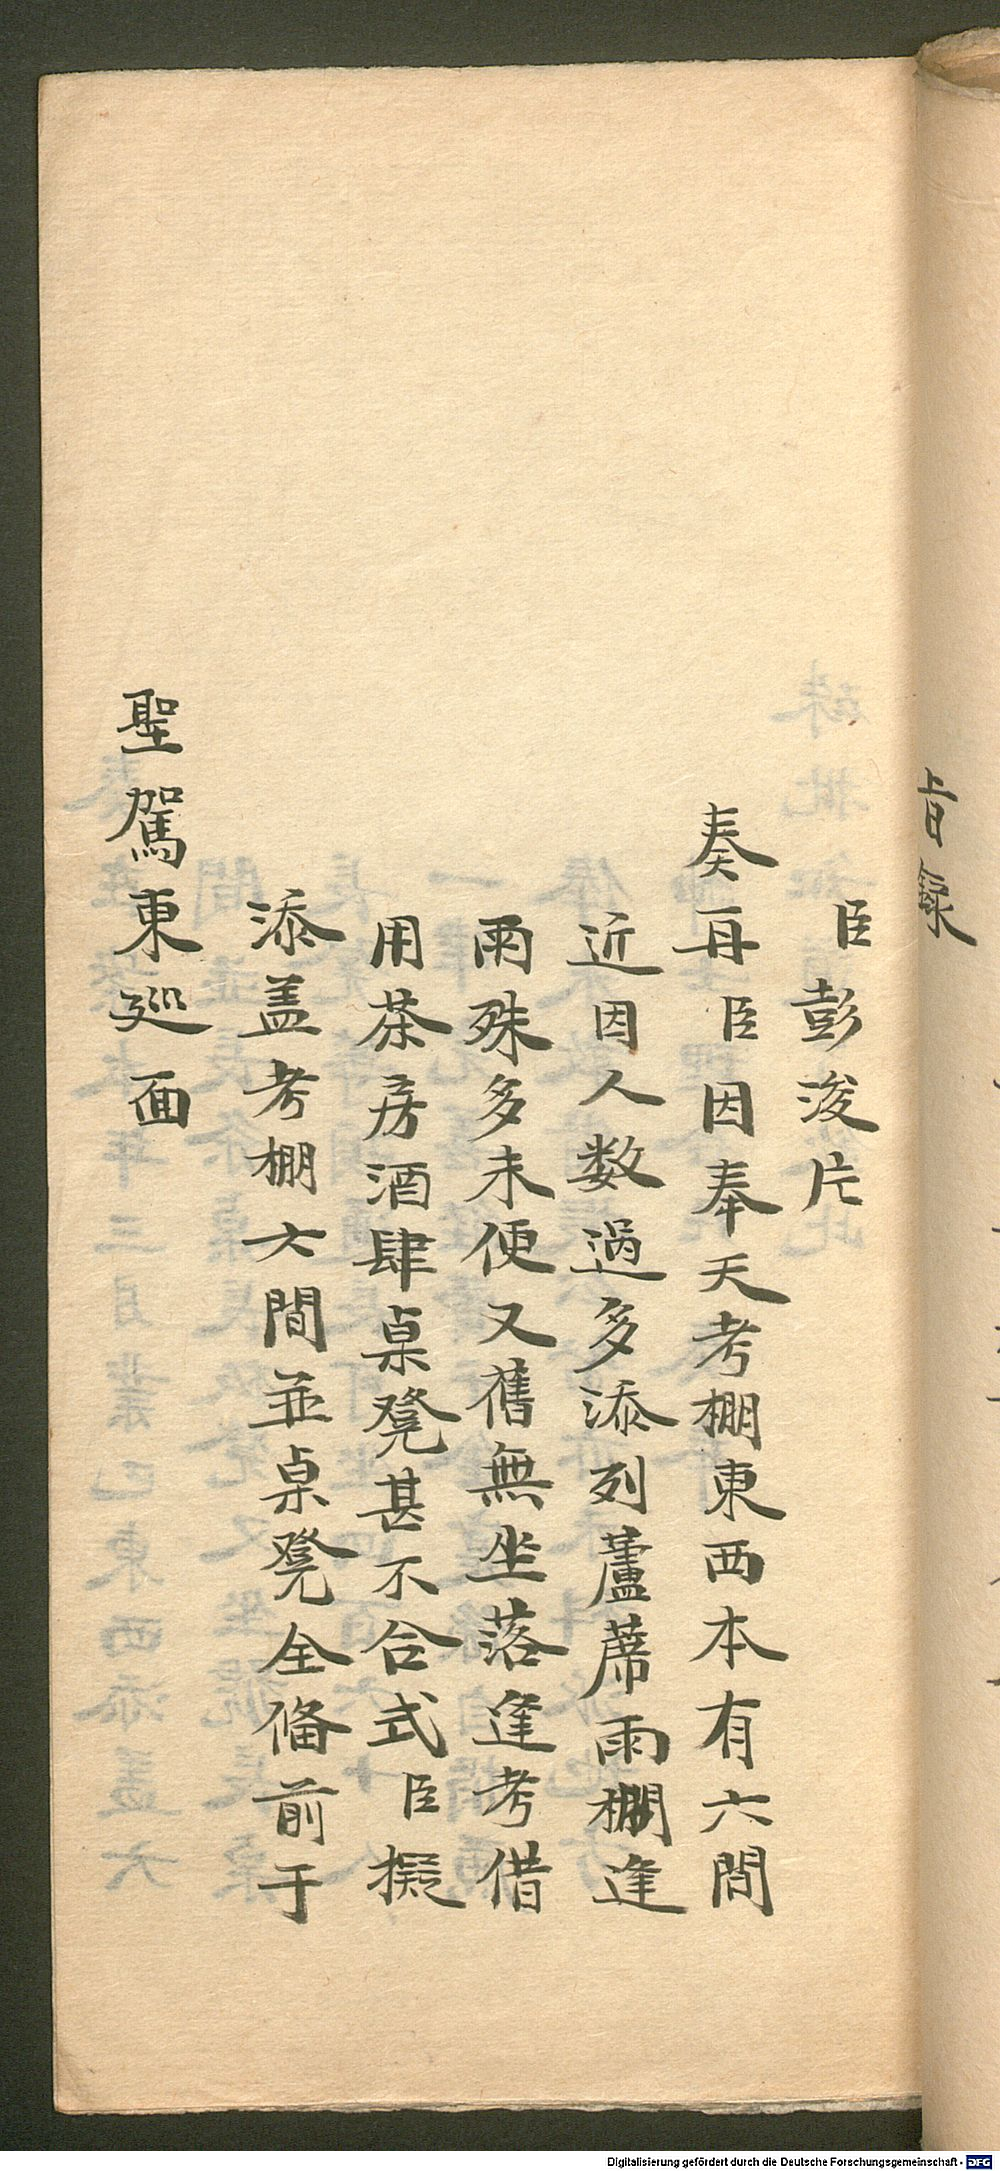 旨録
臣彭浚片
奏再臣因奉天考棚東西本有六間
近因人数過多添列蘆蓆雨棚逢
雨殊多未便又舊無坐落逢考借
用茶房酒肆桌凳甚不合式臣擬
添盖考棚六間並桌凳全俻前于
聖駕東廵面
Digitalisierung gefördert durch die Deutsche Forschungsgemeinschaft - DFG